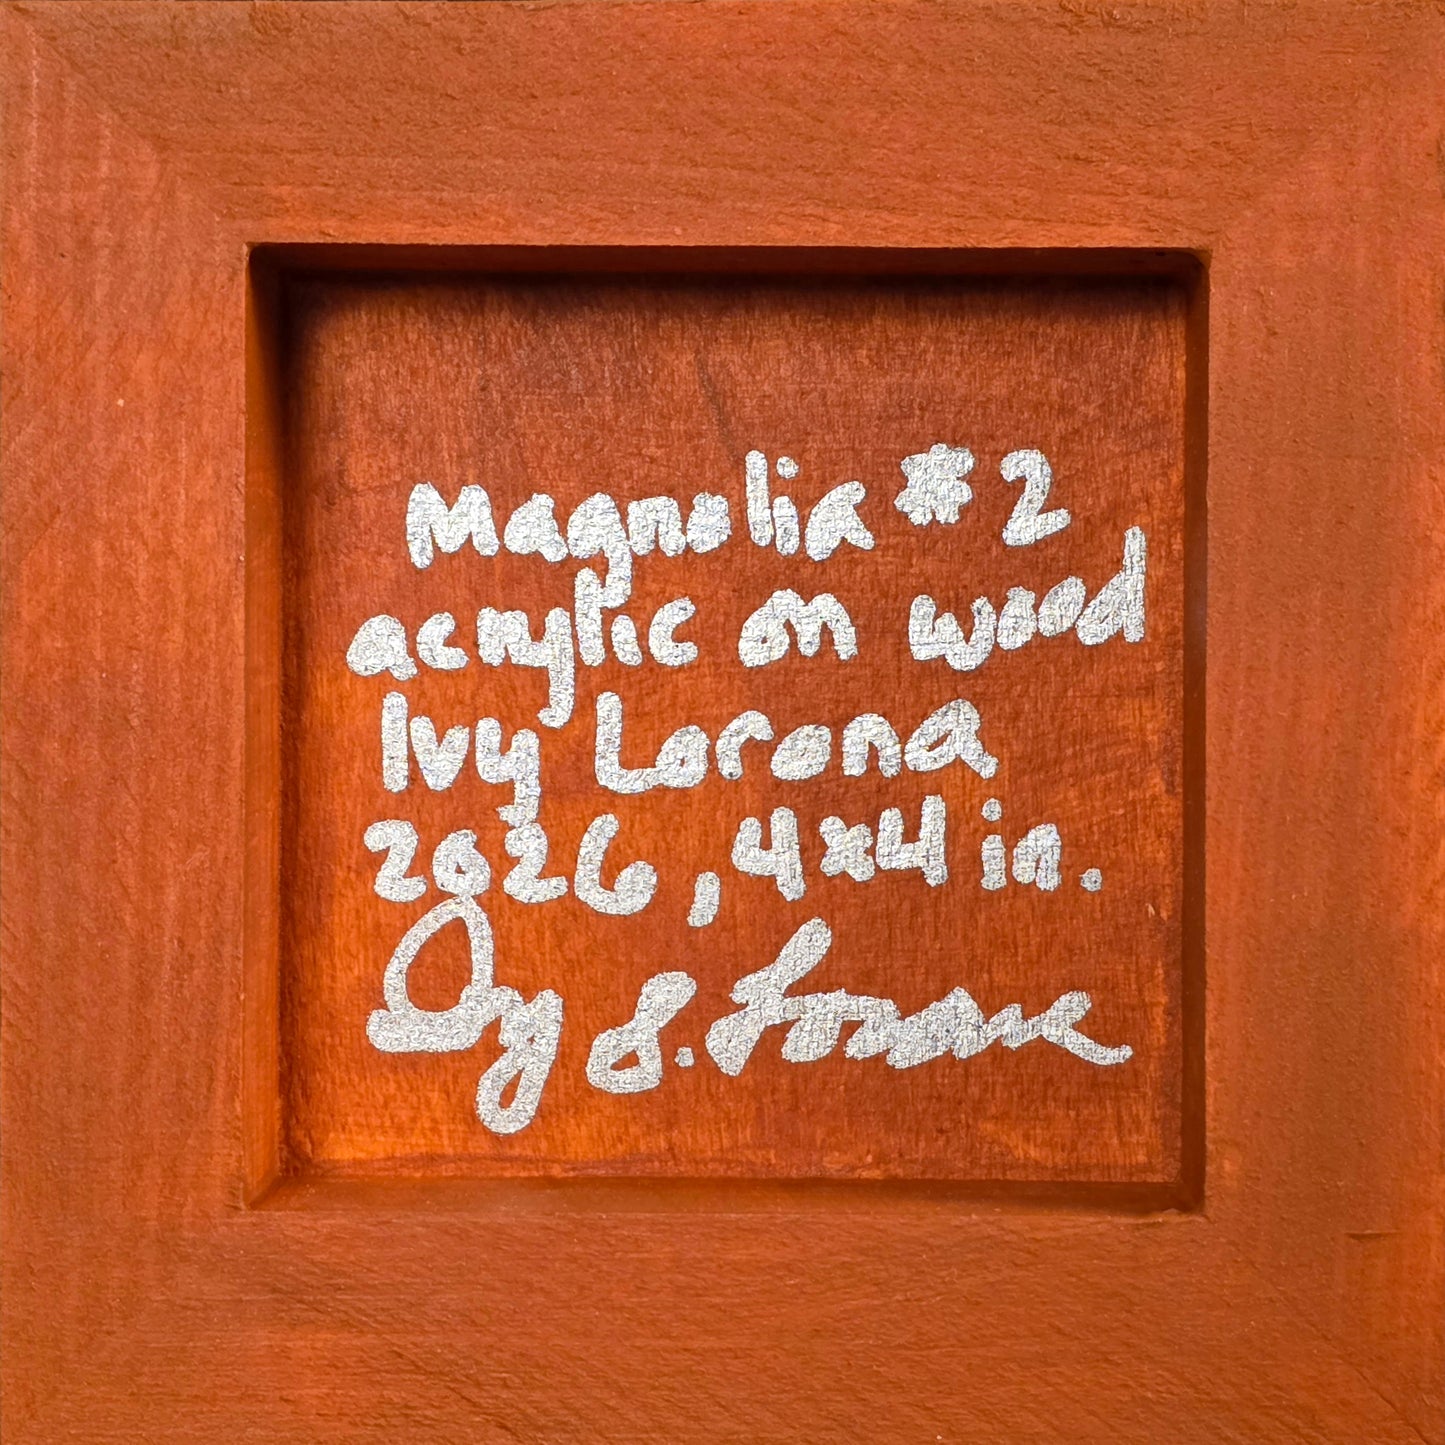 Magnolia #2
acrylic on wood
Ivy Lorona
2026, 4x4 in.